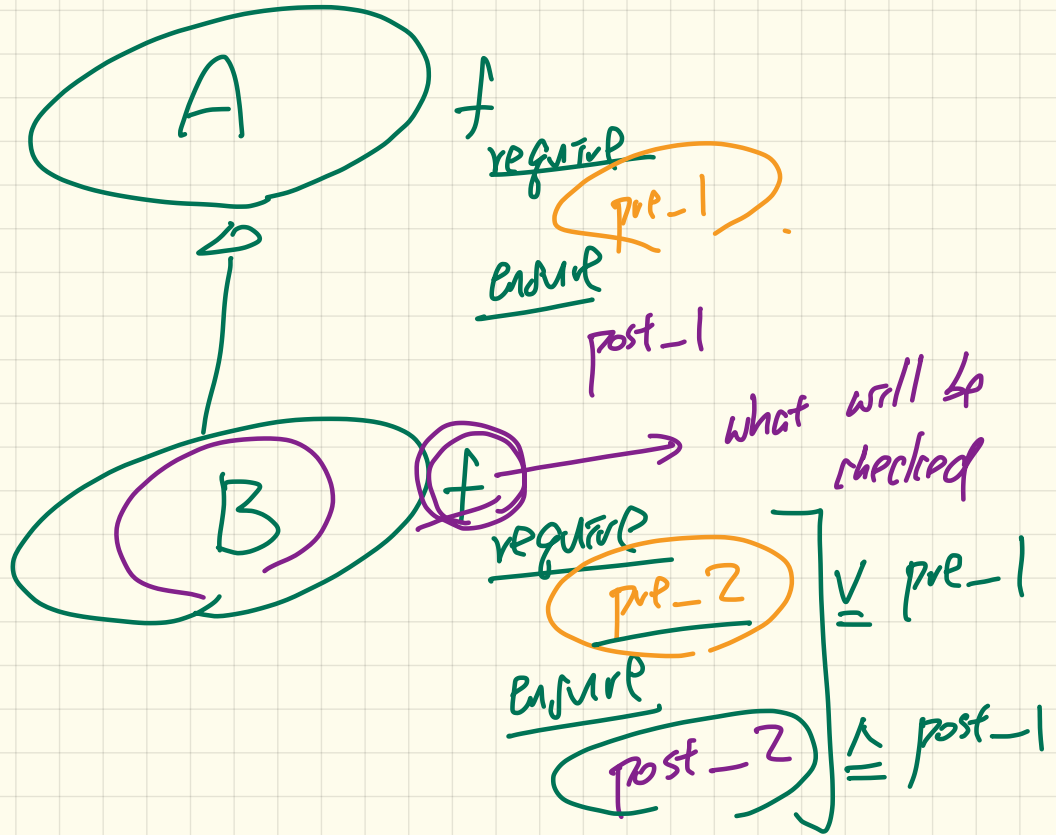 A
f
require
pre_1
ensure
post_1
what will be
checked
B
f
require
pre_2 ∨ pre_1
ensure
post_2 ∧ post_1